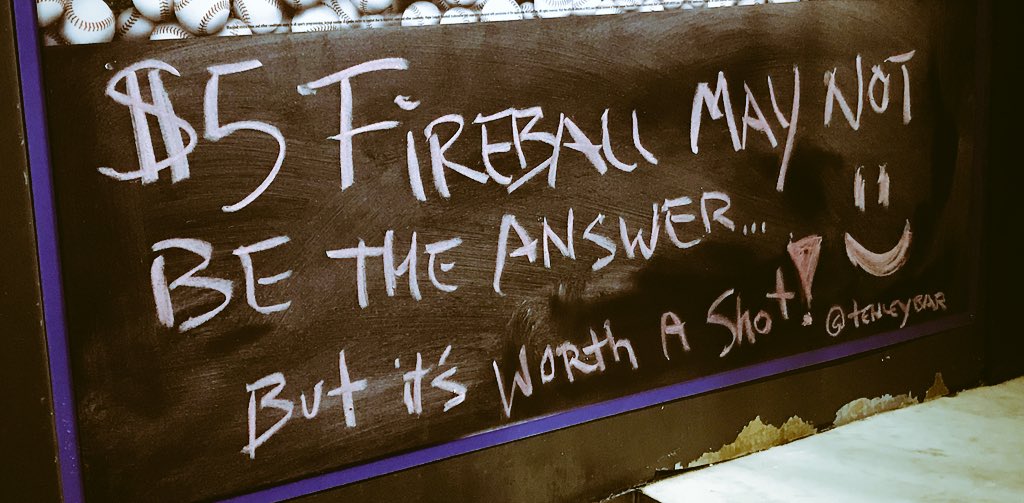 $5 FiREBALL MAY NOT
BE THE ANSWER...
But it's WORth A Shot!
@tENLEYBAR